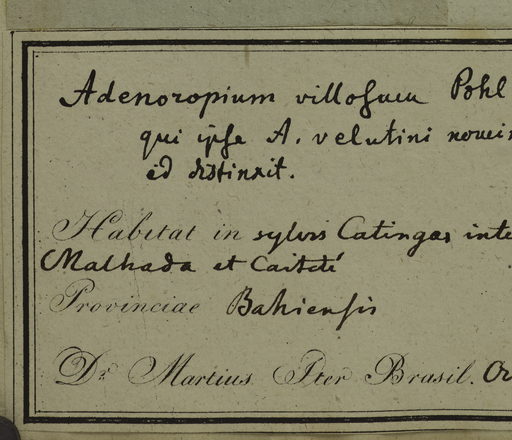 Adenoropium villosum Pohl
qui ipse A. velutini
id distinxit.
Habitat in sylvis Catingas inte
Malhada et Caiteté
Provinciae Bahiensis
Dr. Martius Iter Brasil.